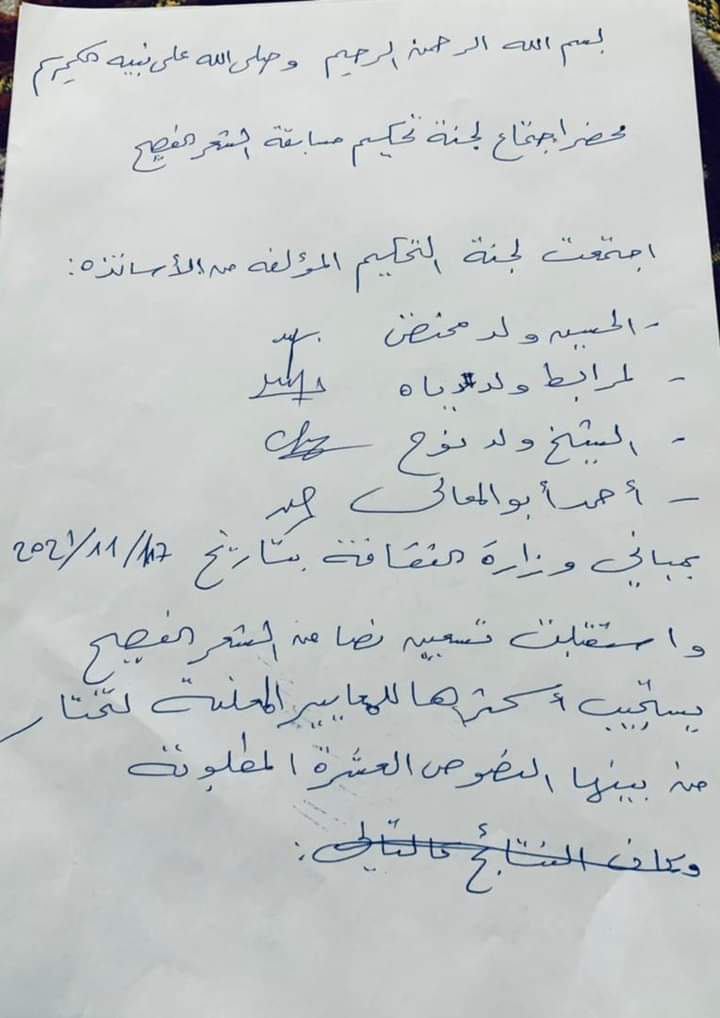 بسم الله الرحمن الرحيم وصلى الله على نبيه الكريم
محضر اجتماع لجنة تحكيم مسابقة الشعر الفصيح
اجتمعت لجنة التحكيم المؤلفة من الأساتذة:
- الحسين ولد محنض
- لمرابط ولد دياه
- الشيخ ولد نوح
- أحمد أبو المعالي
بمباني وزارة الثقافة بتاريخ 17/11/2021
واستقبلت تسعين نصا من الشعر الفصيح
يستجيب أكثرها للمعايير المعلنة لتختار
من بينها النصوص العشرة المطلوبة
وكانت النتائج كالتالي: